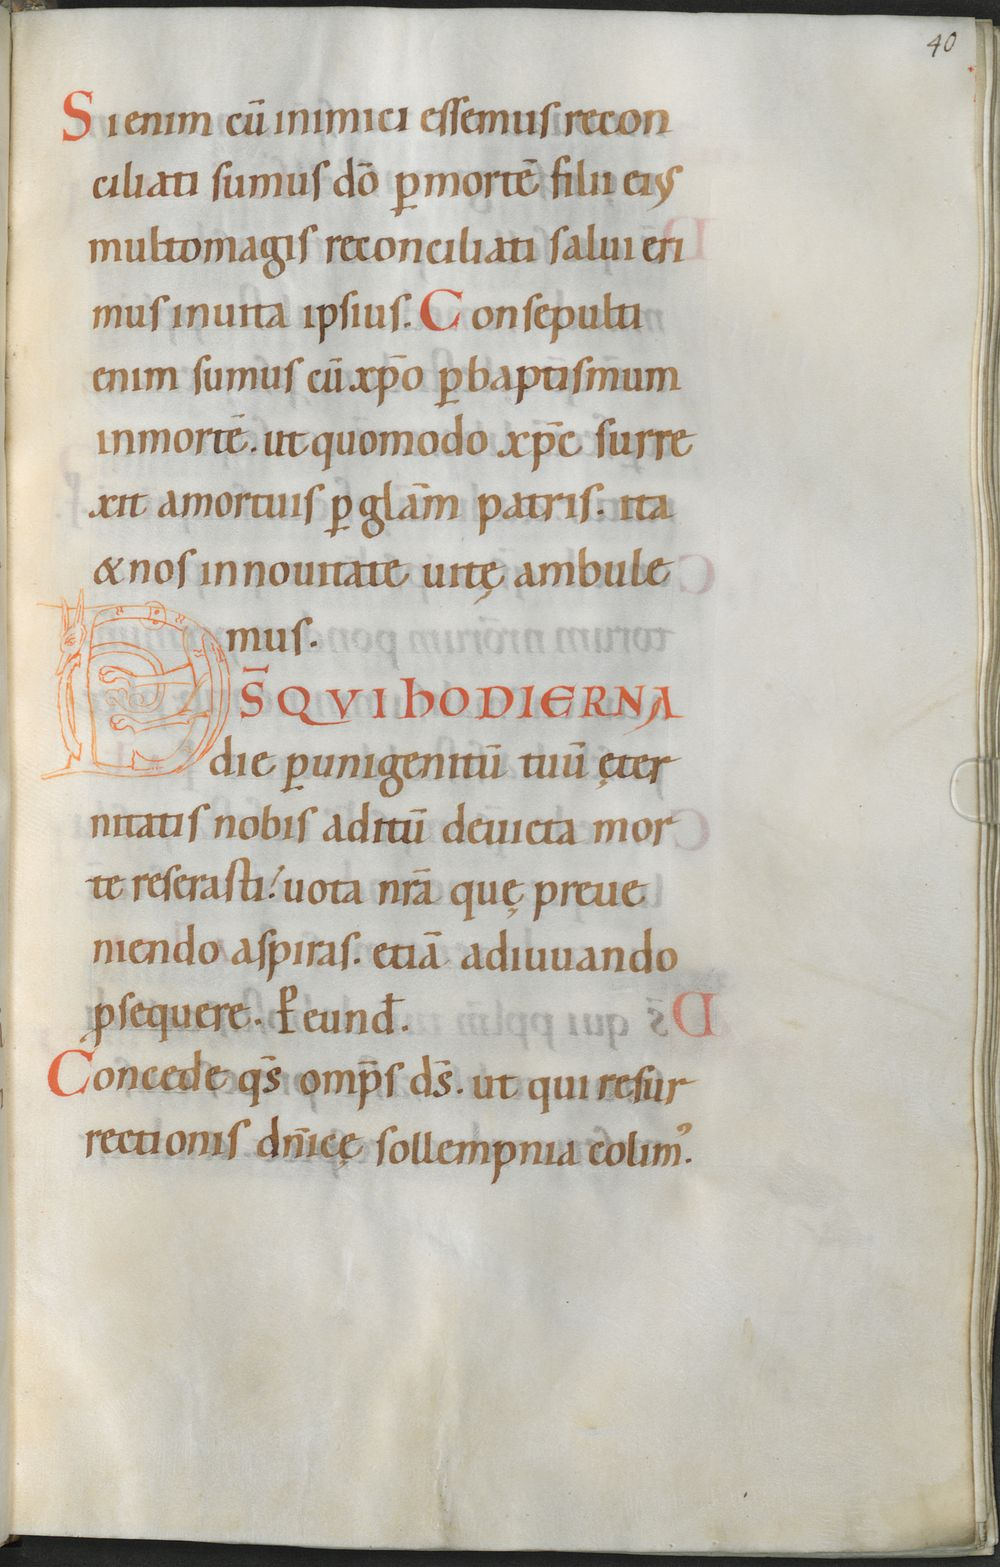 40
Si enim cū inimici essemus recon
ciliati sumus dō ꝑ mortē filii eiꝰ
multo magis reconciliati salui eri
mus in uita ipsius. Consepulti
enim sumus cū xp̄o ꝑ baptismum
in mortē. ut quomodo xp̄c surre
xit a mortuis ꝑ glām patris. ita
& nos in nouitate uitę ambule
mus.
DS̄ QVI hODIERNA
die ꝑ unigenitū tuū ęter
nitatis nobis aditū deuicta mor
te reserasti! uota nrā quę preue
niendo aspiras. etiā adiuuando
ꝓsequere. P̱ eund̄.
Concede qs̄ omp̄s ds̄. ut qui resur
rectionis dn̄icę sollempnia colimꝰ.